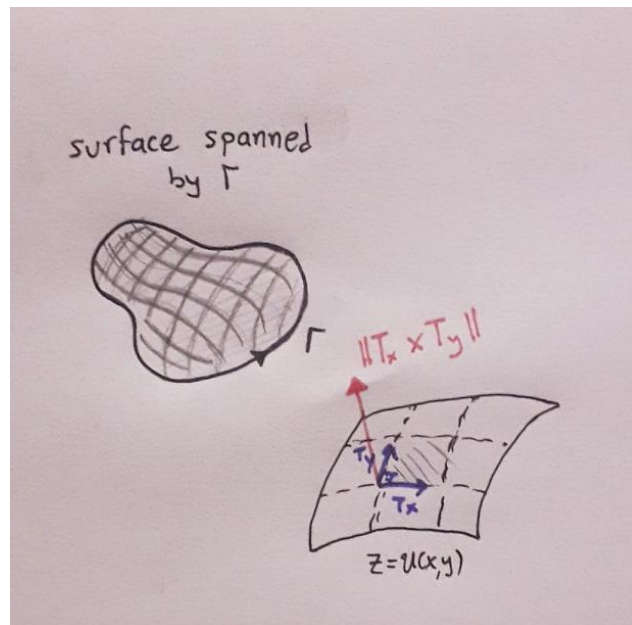 surface spanned
by Γ
Γ
||Tₓ × Tᵧ||
Tᵧ
Tₓ
z=u(x,y)